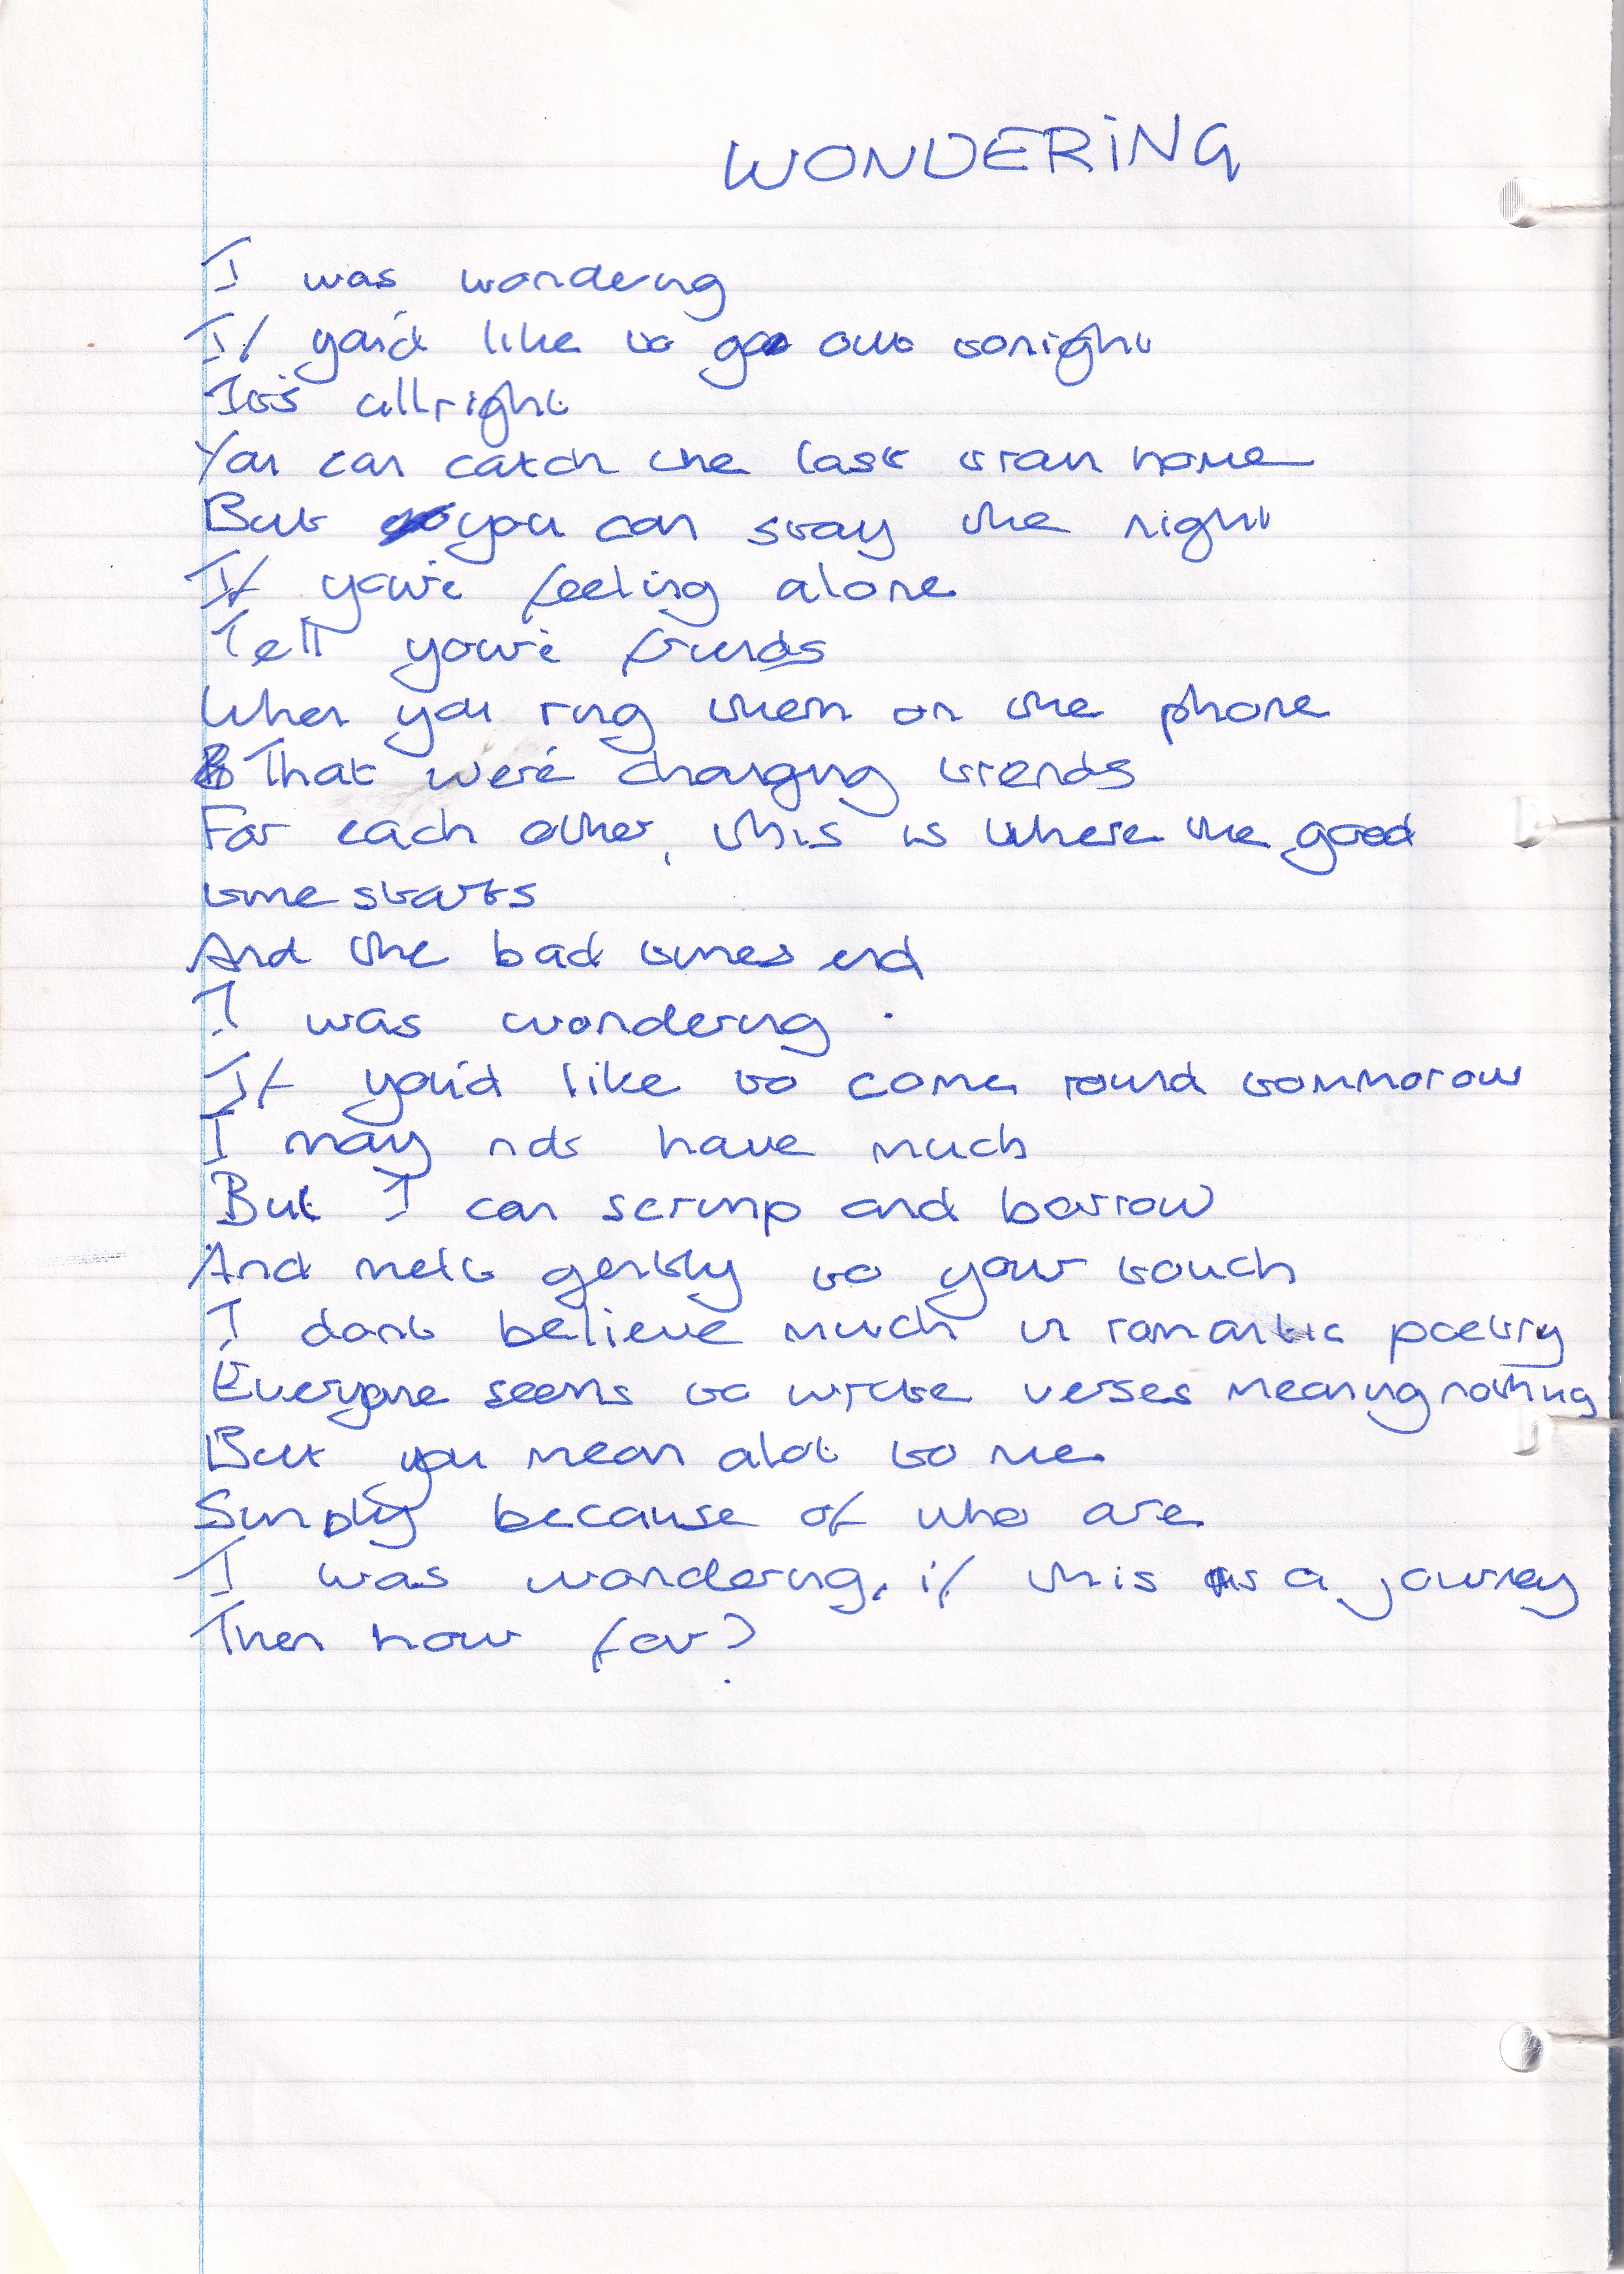 WONDERING
I was wondering
If you'd like to go out tonight
It's allright
You can catch the last train home
But you can stay the night
If you're feeling alone
Tell you're friends
When you ring them on the phone
That we're changing trends
For each other, this is where the good
time starts
And the bad times end
I was wondering
If you'd like to come round tommorow
I may not have much
But I can scrimp and borrow
And melt gently to your touch
I dont believe much in romantic poetry
Everyone seems to write verses meaning nothing
But you mean alot to me
Simply because of who are
I was wondering, if this is a journey
Then how far?